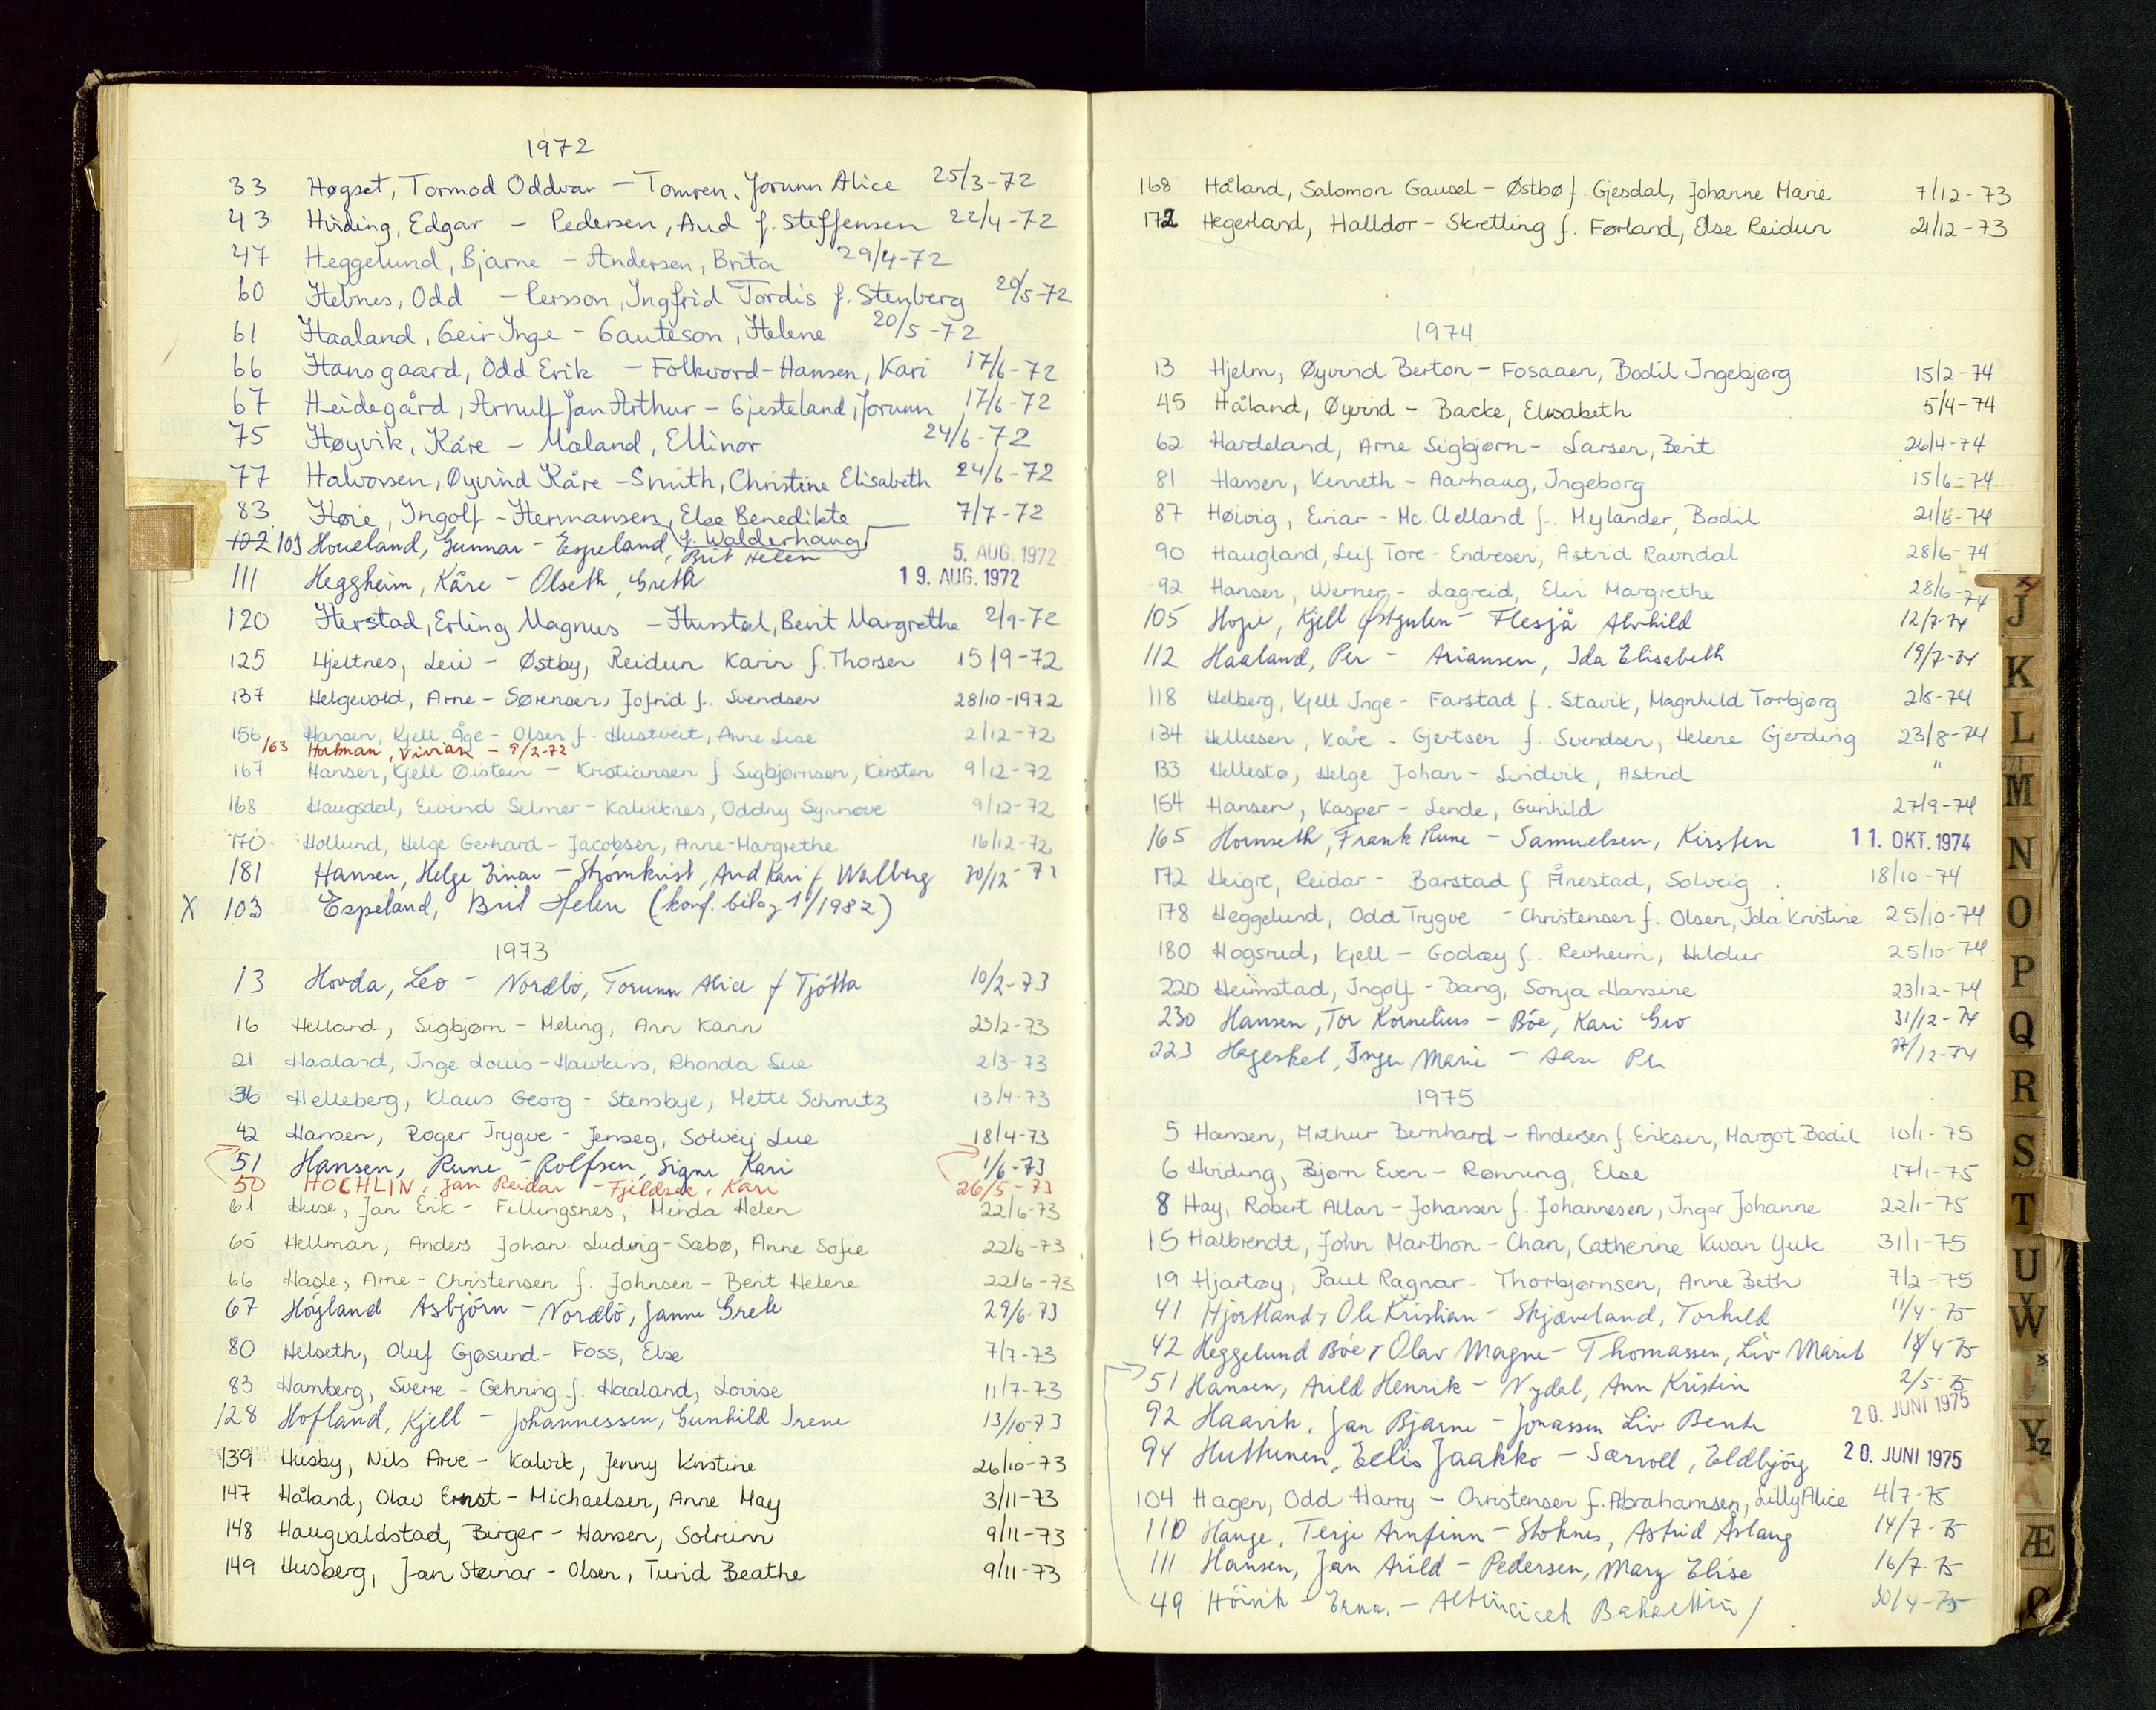 1972
33 Høgset, Tormod Oddvar - Tomren, Jorunn Alice 25/3-72
43 Hviding, Edgar - Pedersen, Aud f. Steffensen 22/4-72
47 Heggelund, Bjarne - Andersen, Brita 29/4-72
60 Hebnes, Odd - Persson, Ingfrid Tordis f. Stenberg 20/5-72
61 Haaland, Geir Inge - Gauteson, Helene 20/5-72
66 Hansgaard, Odd Erik - Folkvord-Hansen, Kari 17/6-72
67 Heidegård, Arnulf Jan Arthur - Gjesteland, Jorunn 17/6-72
75 Høyvik, Kåre - Maland, Ellinor 24/6-72
77 Halvorsen, Øyvind Kåre - Smith, Christine Elisabeth 24/6-72
83 Høie, Ingolf - Hermansen, Else Benedikte 7/7-72
102 103 Houeland, Gunnar - Espeland, f. Walderhaug 5. AUG. 1972
Brit Helen
111 Heggheim, Kåre - Olseth, Greth 19. AUG. 1972
120 Herstad, Erling Magnus - Husstøl, Berit Margrethe 2/9-72
125 Hjeltnes, Leiv - Østby, Reidun Karin f. Thorsen 15/9-72
137 Helgevold, Arne - Sørensen, Jofrid f. Svendsen 28/10-1972
156 Hansen, Kjell Åge - Olsen f. Hustveit, Anne Lise 2/12-72
163 Hofman, Vivian - 9/2-72
167 Hansen, Kjell Øistein - Kristiansen f. Sigbjørnsen, Kirsten 9/12-72
168 Haugsdal, Eivind Selmer - Kalviknes, Oddny Synnøve 9/12-72
170 Hollund, Helge Gerhard - Jacobsen, Anne-Margrethe 16/12-72
181 Hansen, Helge Einar - Strömkvist, Aud Kari f Walberg 30/12-72
X 103 Espeland, Brit Helen (konf. bilag 1/1982)
1973
13 Hovda, Leo - Nordbö, Torunn Alice f Tjötta 10/2-73
16 Helland, Sigbjørn - Meling, Ann Karin 23/2-73
21 Haaland, Inge Louis - Hawkins, Rhonda Sue 2/3-73
36 Helleberg, Klaus Georg - Stensbye, Mette Schmitz 13/4-73
42 Hansen, Roger Trygve - Jenseg, Solveig Lue 18/4-73
51 Hansen, Rune - Rolfsen, Signe Kari 1/6-73
50 HOCHLIN, Jan Reidar - Fjeldsæ, Kari 26/5-73
61 Huse, Jan Erik - Fillingsnes, Minda Helen 22/6-73
65 Hellman, Anders Johan Ludvig - Sæbø, Anne Sofie 22/6-73
66 Hasle, Arne - Christensen f. Johnsen - Berit Helene 22/6-73
67 Höyland Asbjörn - Nordbö, Janne Grete 29/6-73
80 Helseth, Oluf Gjøsund - Foss, Else 7/7-73
83 Hamberg, Sverre - Gehring f. Haaland, Lovise 11/7-73
128 Hofland, Kjell - Johannessen, Gunhild Irene 13/10-73
139 Husby, Nils Arve - Kalvik, Jenny Kristine 26/10-73
147 Håland, Olav Ernst - Michaelsen, Anne May 3/11-73
148 Haugvaldstad, Birger - Hansen, Solrunn 9/11-73
149 Husberg, Jan Steinar - Olsen, Turid Beathe 9/11-73
168 Håland, Salomon Gausel - Østbø f. Gjesdal, Johanne Marie 7/12-73
172 Hegerland, Halldor - Skretting f. Førland, Else Reidun 21/12-73
1974
13 Hjelm, Øyvind Berton - Fosaaen, Bodil Ingebjørg 15/2-74
45 Håland, Øyvind - Backe, Elisabeth 5/4-74
62 Hardeland, Arne Sigbjørn - Larsen, Berit 26/4-74
81 Hansen, Kenneth - Aarhaug, Ingeborg 15/6-74
87 Høivig, Einar - Mc.Clelland f. Meylander, Bodil 21/6-74
90 Haugland, Leif Tore - Endresen, Astrid Ravndal 28/6-74
92 Hansen, Werner - Lagreid, Elin Margrethe 28/6-74
105 Hope, Kjell Østgulen - Flesjå Alvhild 12/7-74
112 Haaland, Per - Ariansen, Ida Elisabeth 19/7-74
118 Helberg, Kjell Inge - Farstad f. Stavik, Magnhild Torbjørg 2/8-74
134 Helliesen, Kåre - Gjertsen f. Svendsen, Helene Gjerding 23/8-74
133 Hellestø, Helge Johan - Lindvik, Astrid "
154 Hansen, Kasper - Lende, Gunhild 27/9-74
165 Hornseth, Frank Rune - Samuelsen, Kirsten 11. OKT. 1974
172 Heigre, Reidar - Barstad f Årrestad, Solveig 18/10-74
178 Heggelund, Odd Trygve - Christensen f. Olsen, Ida Kristine 25/10-74
180 Hogsrud, Kjell - Godøy f. Revheim, Hildur 25/10-74
220 Heimstad, Ingolf - Dang, Sonja Hansine 23/12-74
230 Hansen, Tor Kornelius - Böe, Kari Gro 31/12-74
223 Hageskel, Inger Marie - Aase Per 27/12-74
1975
5 Hansen, Arthur Bernhard - Andersen f. Eriksen, Margot Bodil 10/1-75
6 Hviding, Bjørn Even - Rønning, Else 17/1-75
8 Hay, Robert Allan - Johansen f. Johannesen, Inger Johanne 22/1-75
15 Halbrendt, John Marthon - Chan, Catherine Kwan Yuk 31/1-75
19 Hjartøy, Paul Ragnar - Thorbjørnsen, Anne Beth 7/2-75
41 Hjortland, Ole Kristian - Skjæveland, Torhild 11/4-75
42 Heggelund Böe, Olav Magne - Thomassen, Liv Marit 18/4-75
51 Hansen, Arild Henrik - Nydal, Ann Kristin 2/5-75
92 Haavik, Jan Bjarne - Jonassen Liv Bente 20. JUNI 1975
94 Huttunen, Eelis Jaakko - Særvoll, Eldbjörg 20. JUNI 1975
104 Hagen, Odd Harry - Christensen f. Abrahamsen, Lilly Alice 4/7-75
110 Hauge, Terje Arnfinn - Stoknes, Astrid Åslaug 14/7-75
111 Hansen, Jan Arild - Pedersen, Mary Elise 16/7-75
49 Höivik - Erna, - Altincicek Bahaettin / 30/4-75
J
K
L
M
N
O
P
Q
R
S
T
U
V
W
Y
Z
Å
Æ
Ø